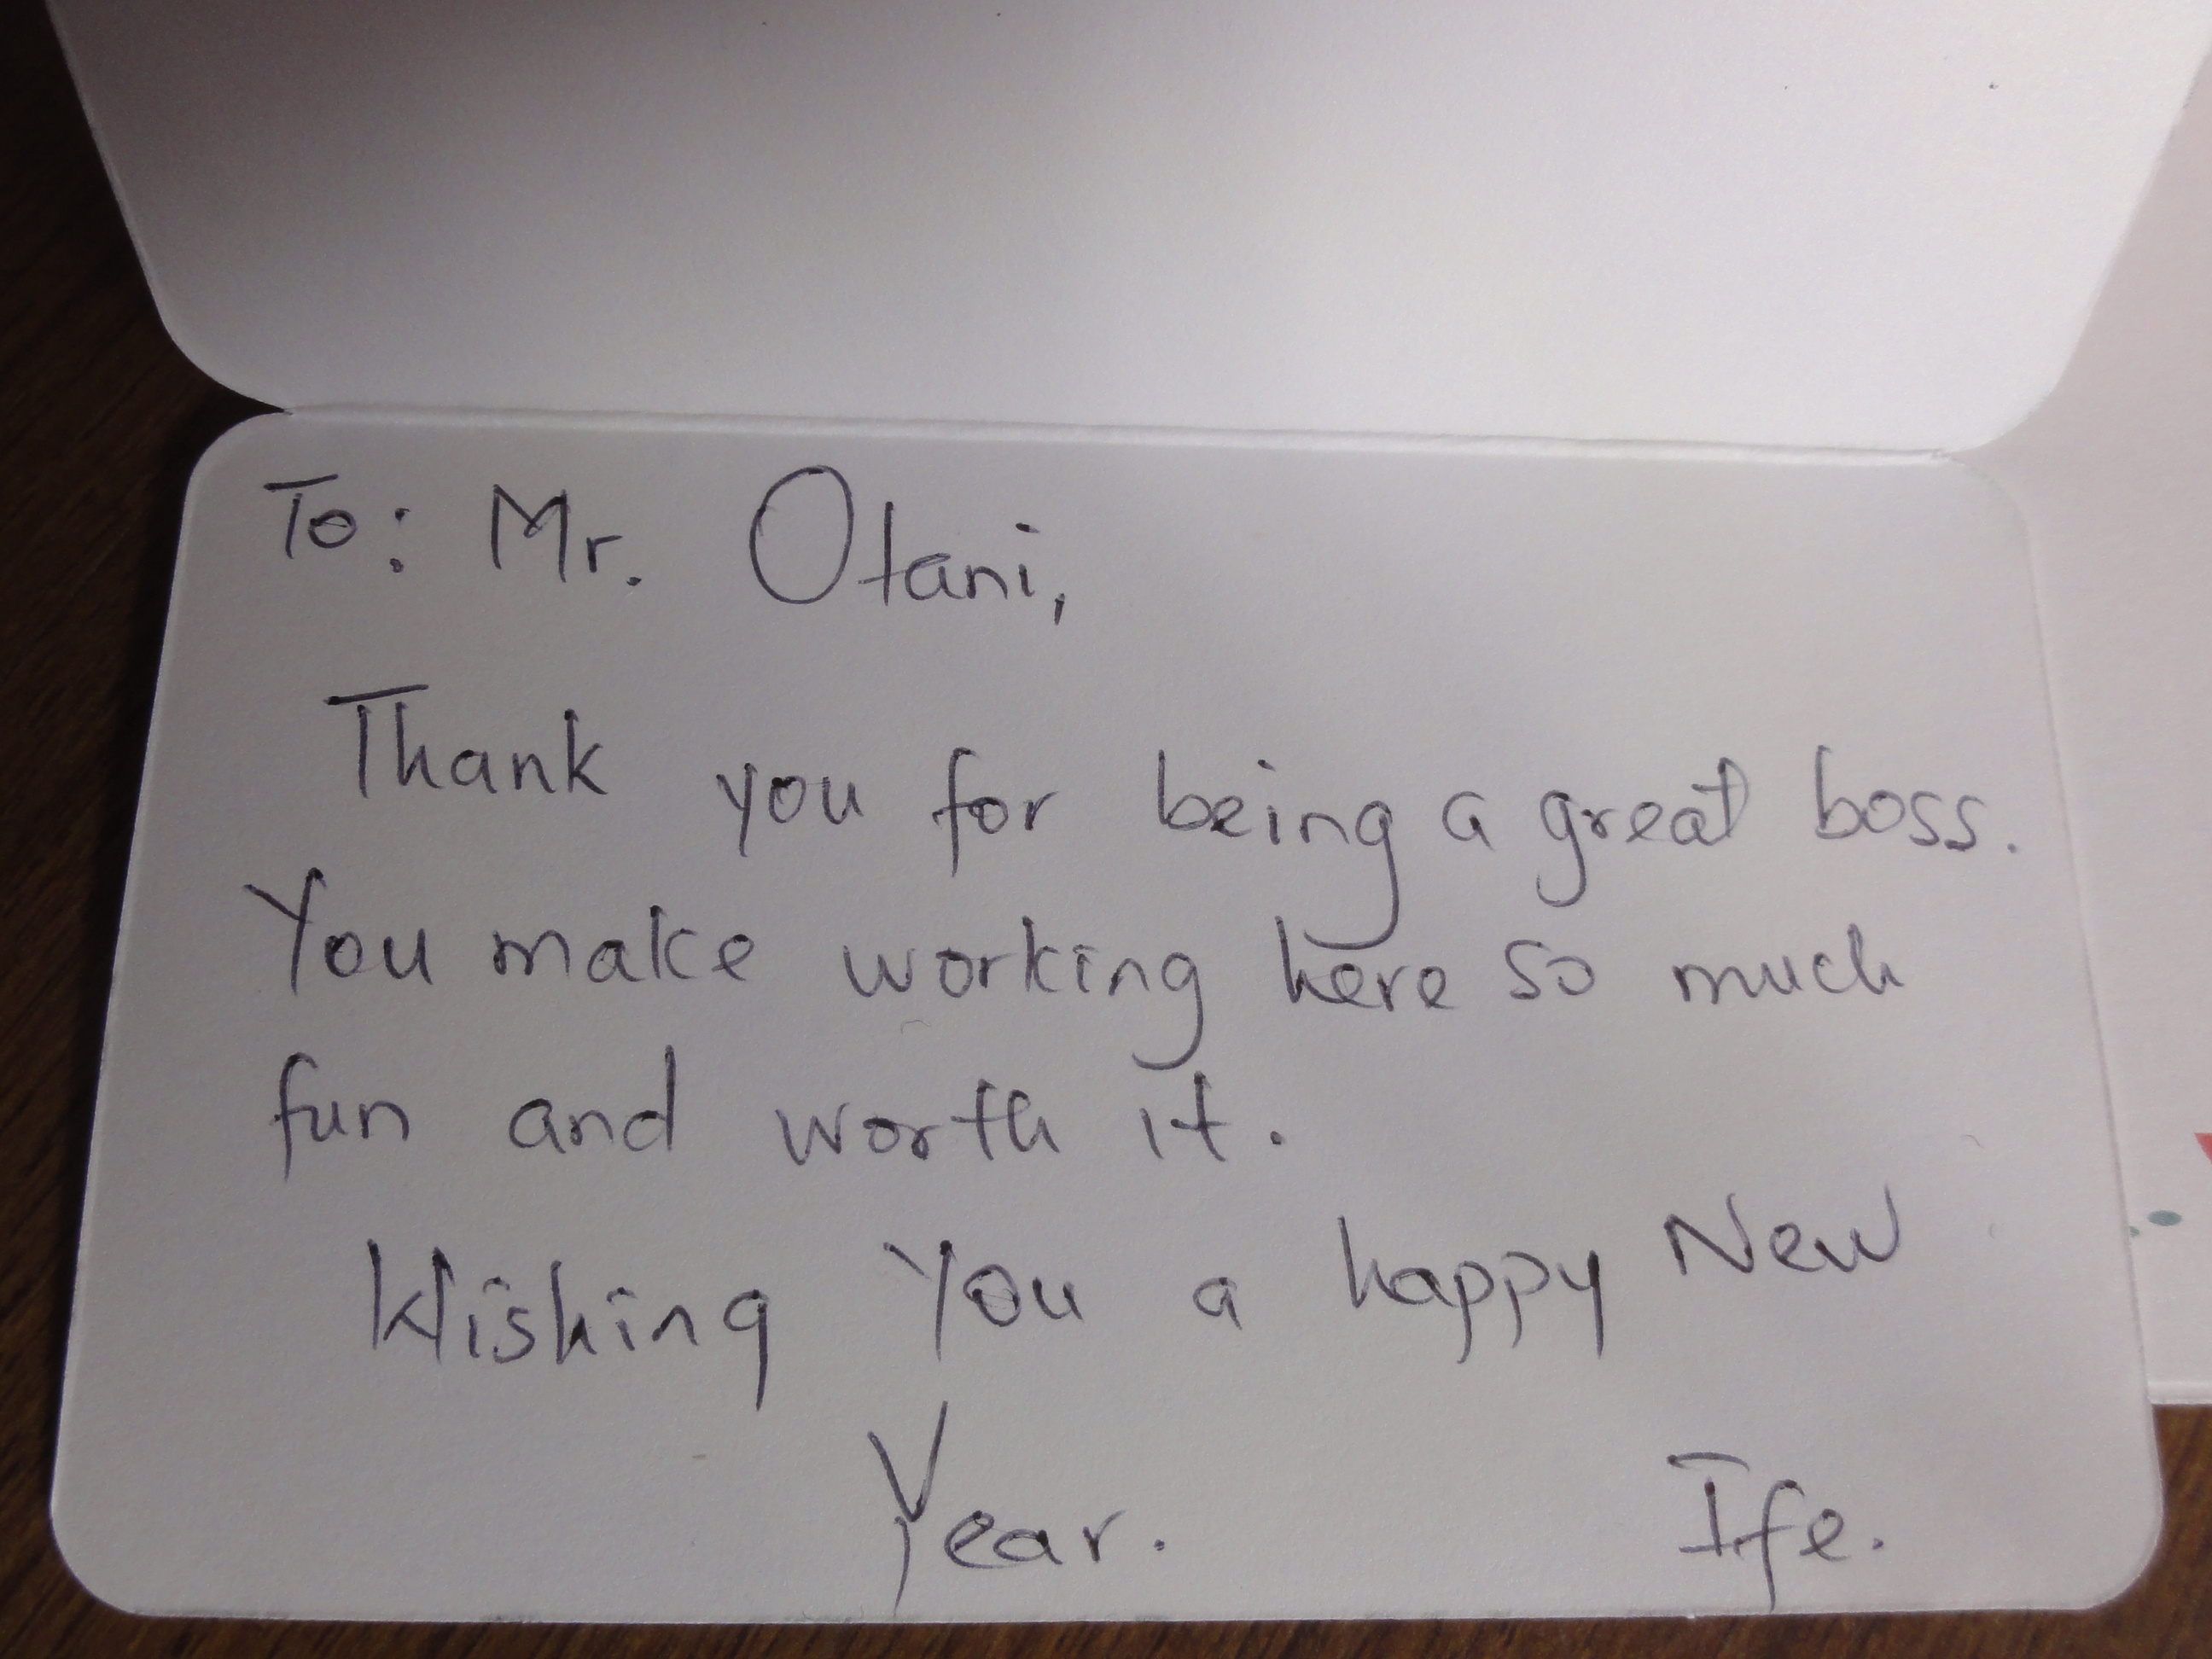 To: Mr. Otani,
Thank you for being a great boss.
You make working here so much
fun and worth it.
Wishing You a happy New
Year.
Ife.